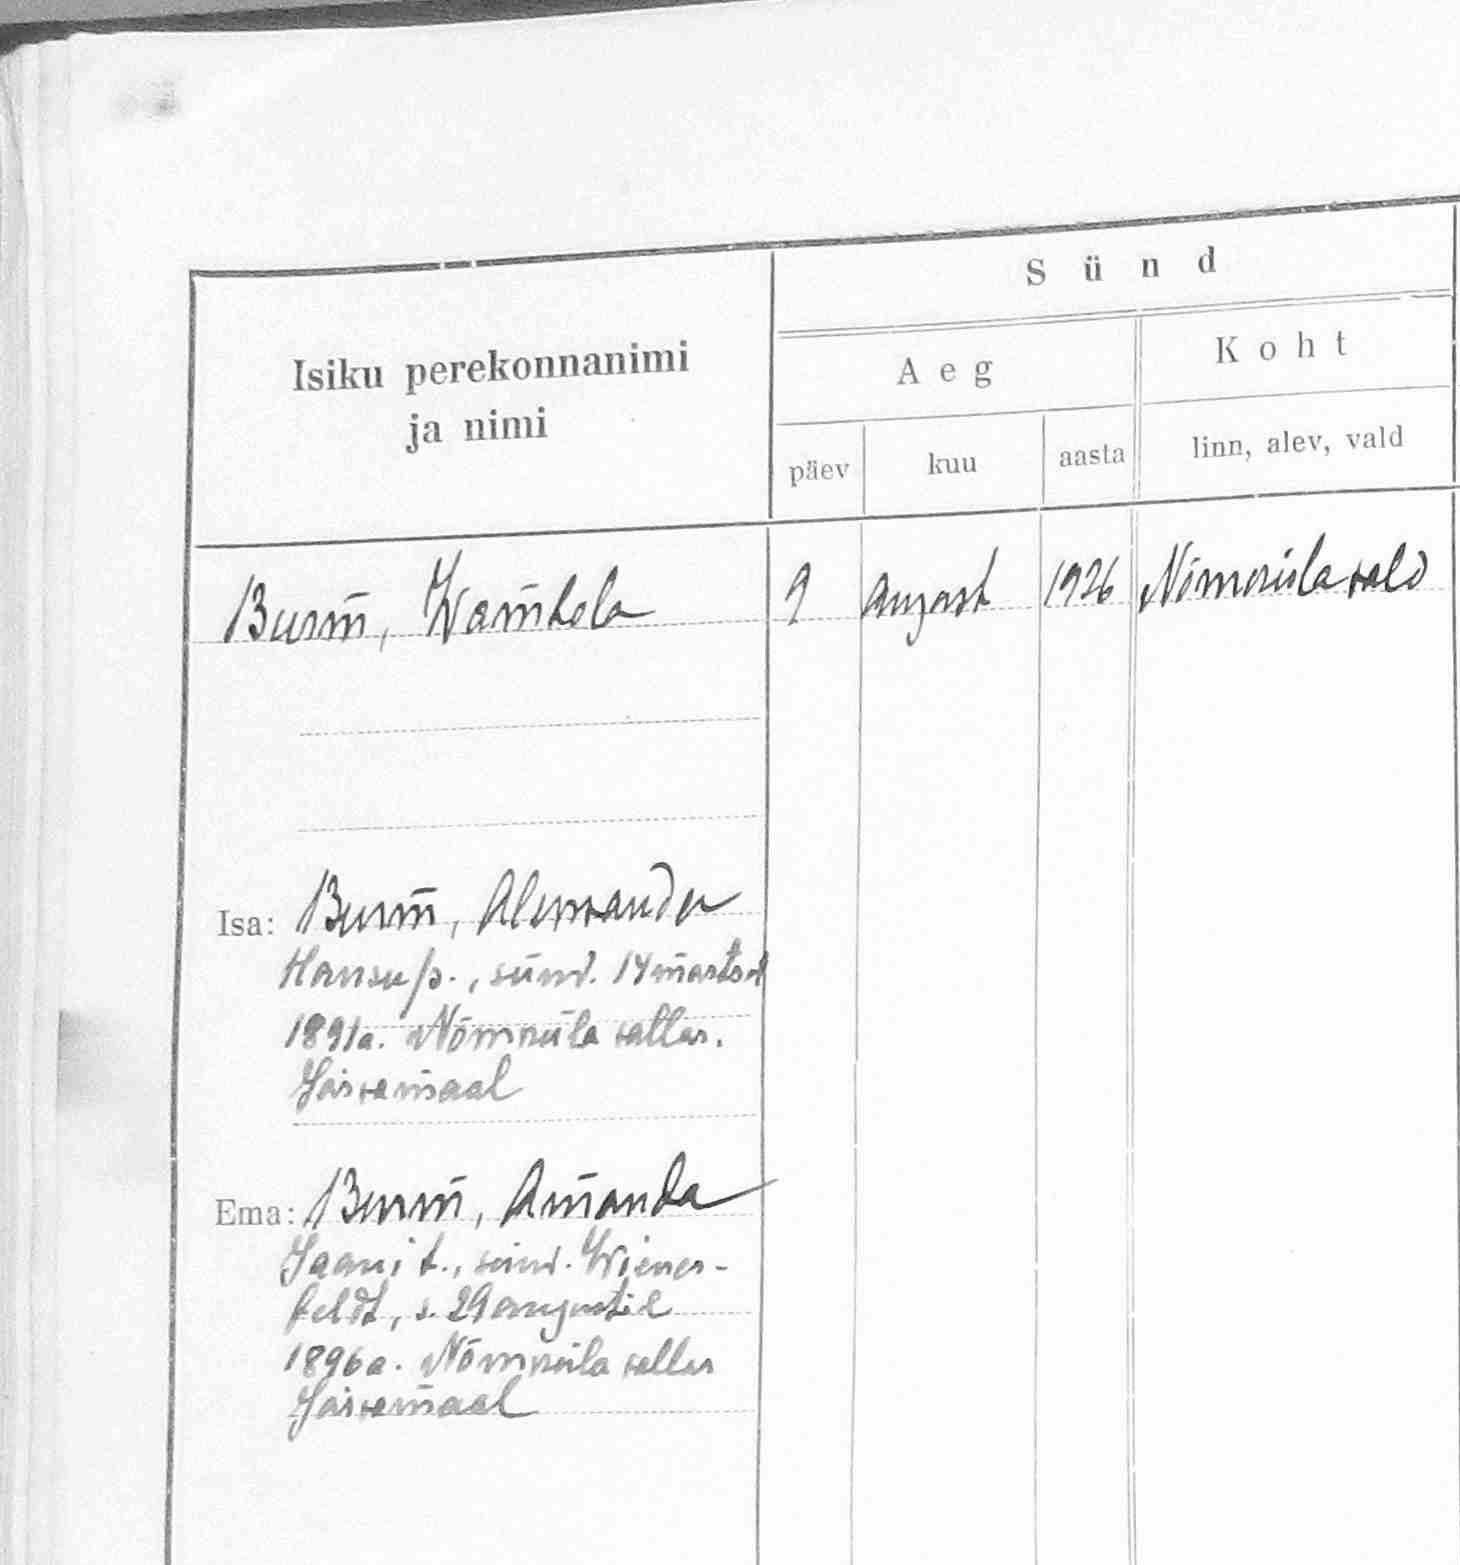 Sünd
Isiku perekonnanimi
ja nimi
Aeg
Koht
päev kuu aasta linn, alev, vald
Burm, Wambola 9 august 1926 Nõmmküla vald
Isa: Burm, Aleksander
Hansu p., sünd. 14 märtsil
1891 a. Nõmmküla vallas.
Järvamaal
Ema: Burm, Amanda
Jaani t., sünd. Wiener-
feldt, s. 29 augustil
1896 a. Nõmmküla vallas
Järvamaal